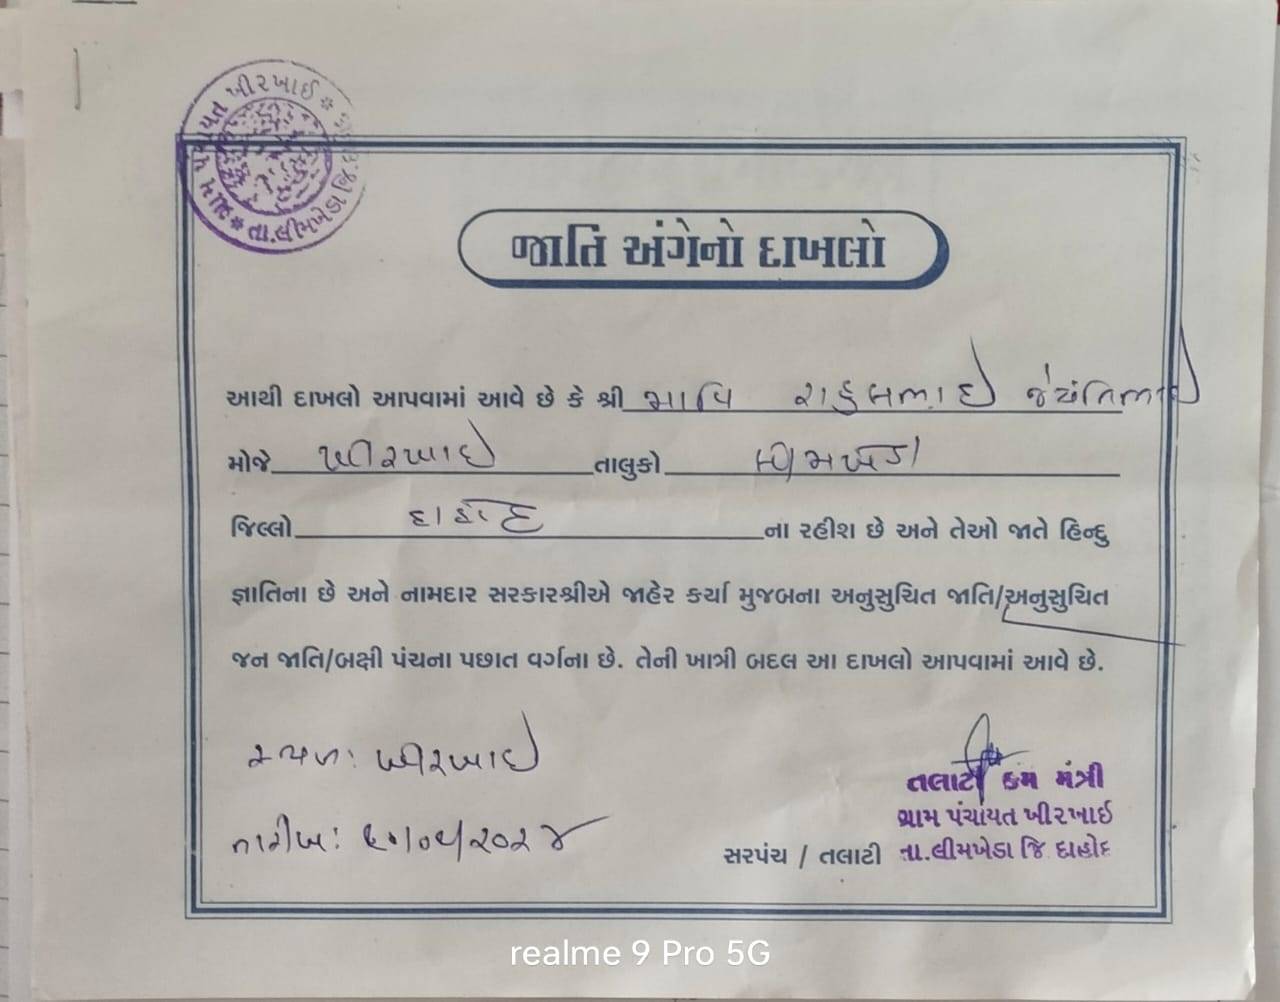 ગ્રામ પંચાયત ખીરખાઈ * તા.લીમખેડા જિ.
જાતિ અંગેનો દાખલો
આથી દાખલો આપવામાં આવે છે કે શ્રી ભાવિ રાહુલભાઈ જયંતિભાઈ
મોજે ખીરખાઈ તાલુકો લીમખેડા
જિલ્લો દાહોદ ના રહીશ છે અને તેઓ જાતે હિન્દુ
જ્ઞાતિના છે અને નામદાર સરકારશ્રીએ જાહેર કર્યા મુજબના અનુસુચિત જાતિ/અનુસુચિત
જન જાતિ/બક્ષી પંચના પછાત વર્ગના છે. તેની ખાત્રી બદલ આ દાખલો આપવામાં આવે છે.
સ્થળ: ખીરખાઈ
તલાટી કમ મંત્રી
ગ્રામ પંચાયત ખીરખાઈ
તારીખ: /૨૦૨૪
સરપંચ / તલાટી તા.લીમખેડા જિ દાહોદ
realme 9 Pro 5G